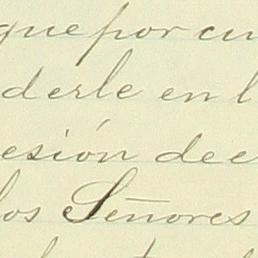 que por cu
derle en l
esión de e
los Señores